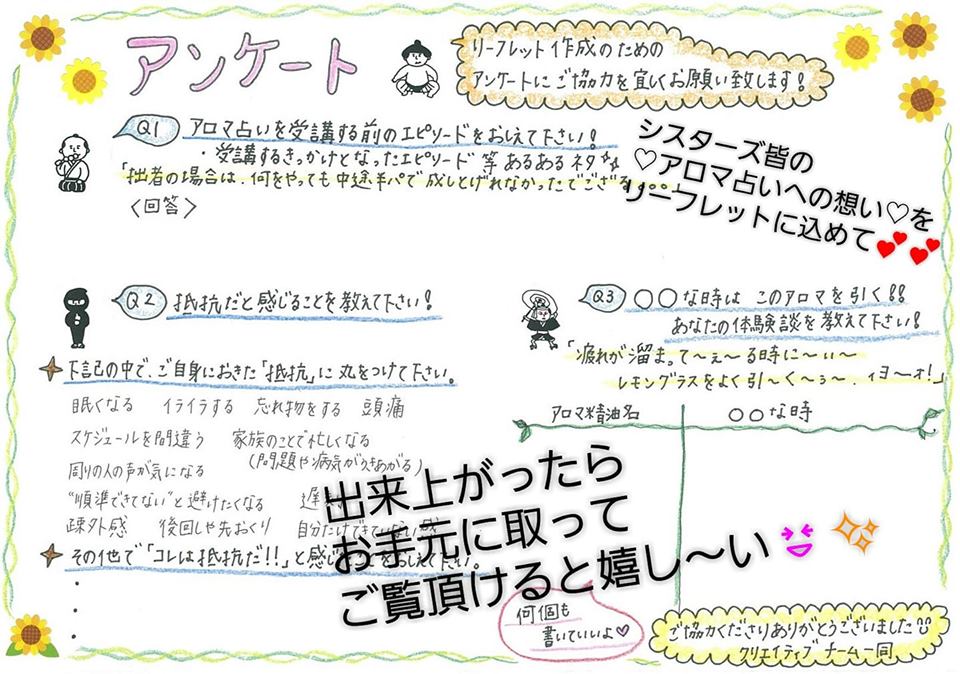 アンケート
リーフレット作成のための
アンケートにご協力を宜しくお願い致します!
Q1 アロマ占いを受講する前のエピソードをおしえて下さい!
・受講するきっかけとなったエピソード等 あるあるネタ
「拙者の場合は、何をやっても中途半パで成しとげれなかったでござる。。。
<回答>
シスターズ皆の
♡アロマ占いへの想い♡を
リーフレットに込めて💕💕
Q2 抵抗だと感じることを教えて下さい!
下記の中で、ご自身におきた「抵抗」に丸をつけて下さい。
眠くなる イライラする 忘れ物をする 頭痛
スケジュールを間違う 家族のことで忙しくなる
(問題や病気がうきあがる)
周りの人の声が気になる
"順準できてない"と避けたくなる 遅
疎外感 後回しや先おくり 自分だけできていない感
その他で「コレは抵抗だ!!」と感じ をおしえて下さい。
Q3 ○○な時は このアロマを引く!!
あなたの体験談を教えて下さい!
「疲れが溜まって〜ぇ〜る時に〜ぃ〜
レモングラスをよく引〜く〜ぅ〜、ィヨ〜ォ!」
アロマ精油名 ○○な時
出来上がったら
お手元に取って
ご覧頂けると嬉し〜い
何個も
書いていいよ♡
ご協力くださりありがとうございました
クリエイティブチーム一同